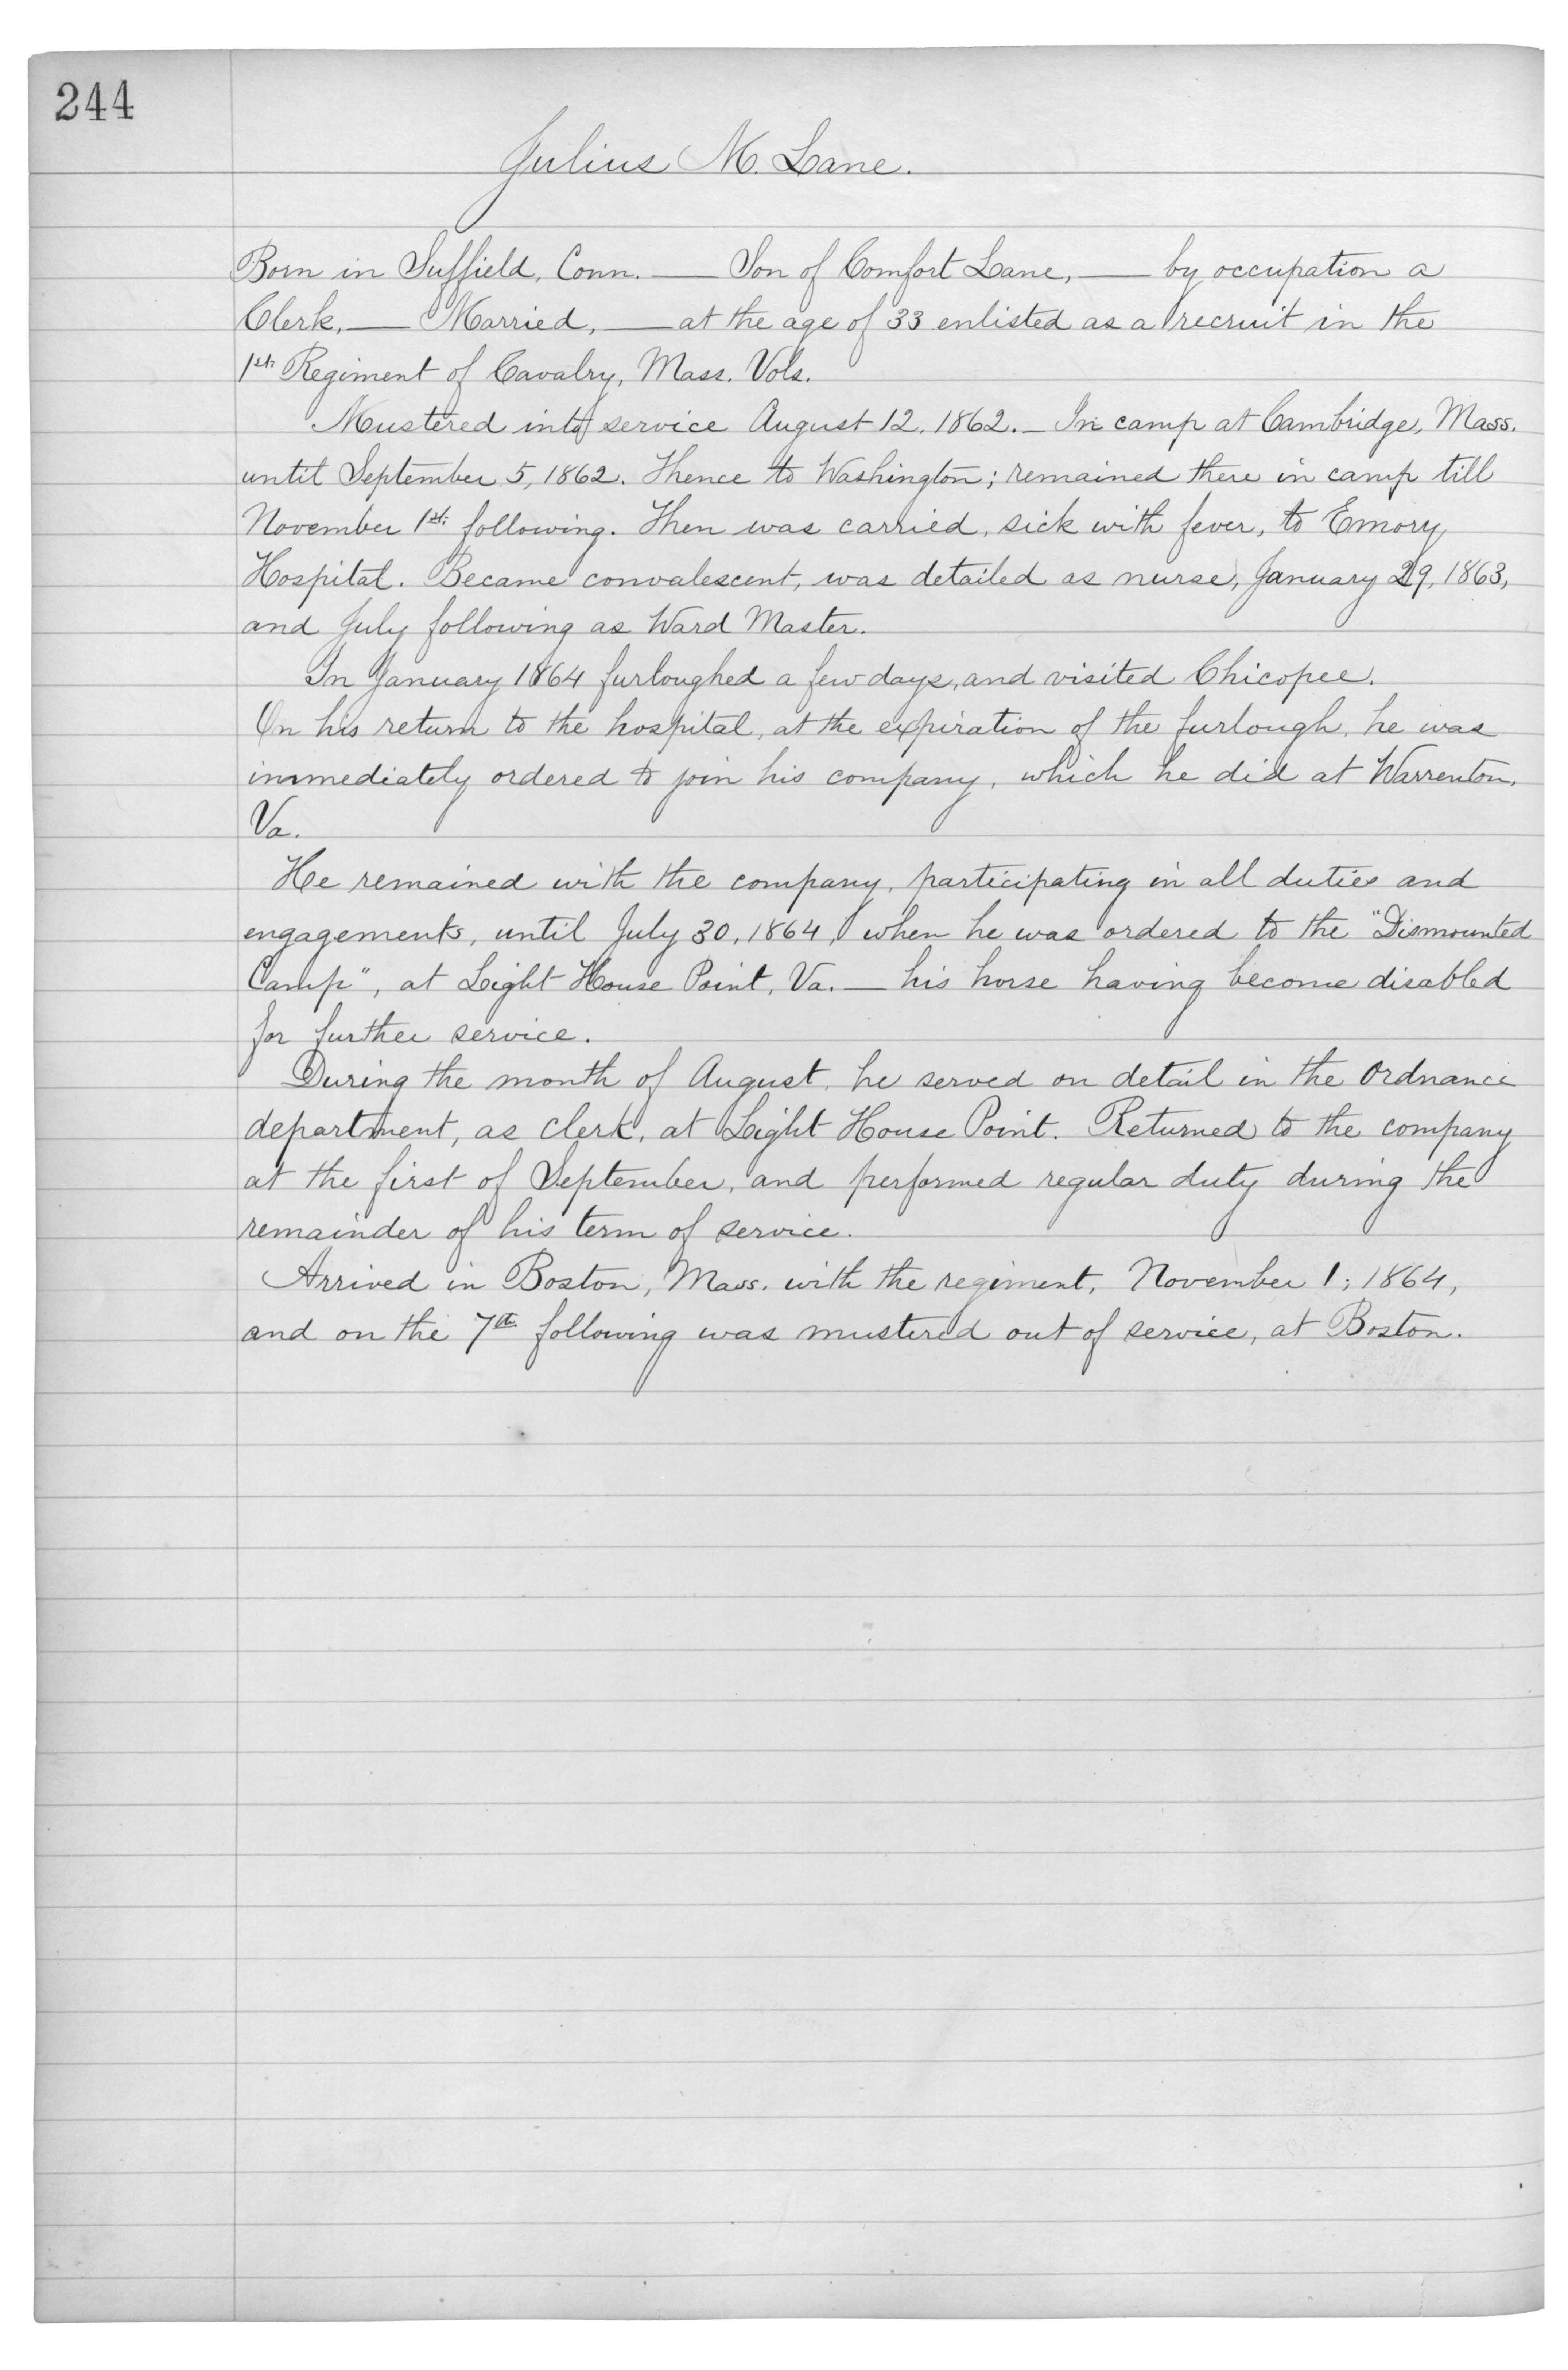 244
Julius M. Lane.
Born in Suffield, Conn. — Son of Comfort Lane, — by occupation a
Clerk, — Married, — at the age of 33 enlisted as a recruit in the
1st Regiment of Cavalry, Mass. Vols.
Mustered into service August 12, 1862. — In camp at Cambridge, Mass.
until September 5, 1862. Thence to Washington; remained there in camp till
November 1st following. Then was carried, sick with fever, to Emory
Hospital. Became convalescent, was detailed as nurse, January 29, 1863,
and July following as Ward Master.
In January 1864 furloughed a few days, and visited Chicopee.
On his return to the hospital, at the expiration of the furlough, he was
immediately ordered to join his company, which he did at Warrenton,
Va.
He remained with the company, participating in all duties and
engagements, until July 30, 1864, when he was ordered to the "Dismounted
Camp", at Light House Point, Va. — his horse having become disabled
for further service.
During the month of August, he served on detail in the Ordnance
department, as clerk, at Light House Point. Returned to the company
at the first of September, and performed regular duty during the
remainder of his term of service.
Arrived in Boston, Mass. with the regiment, November 1, 1864,
and on the 7th following was mustered out of service, at Boston.